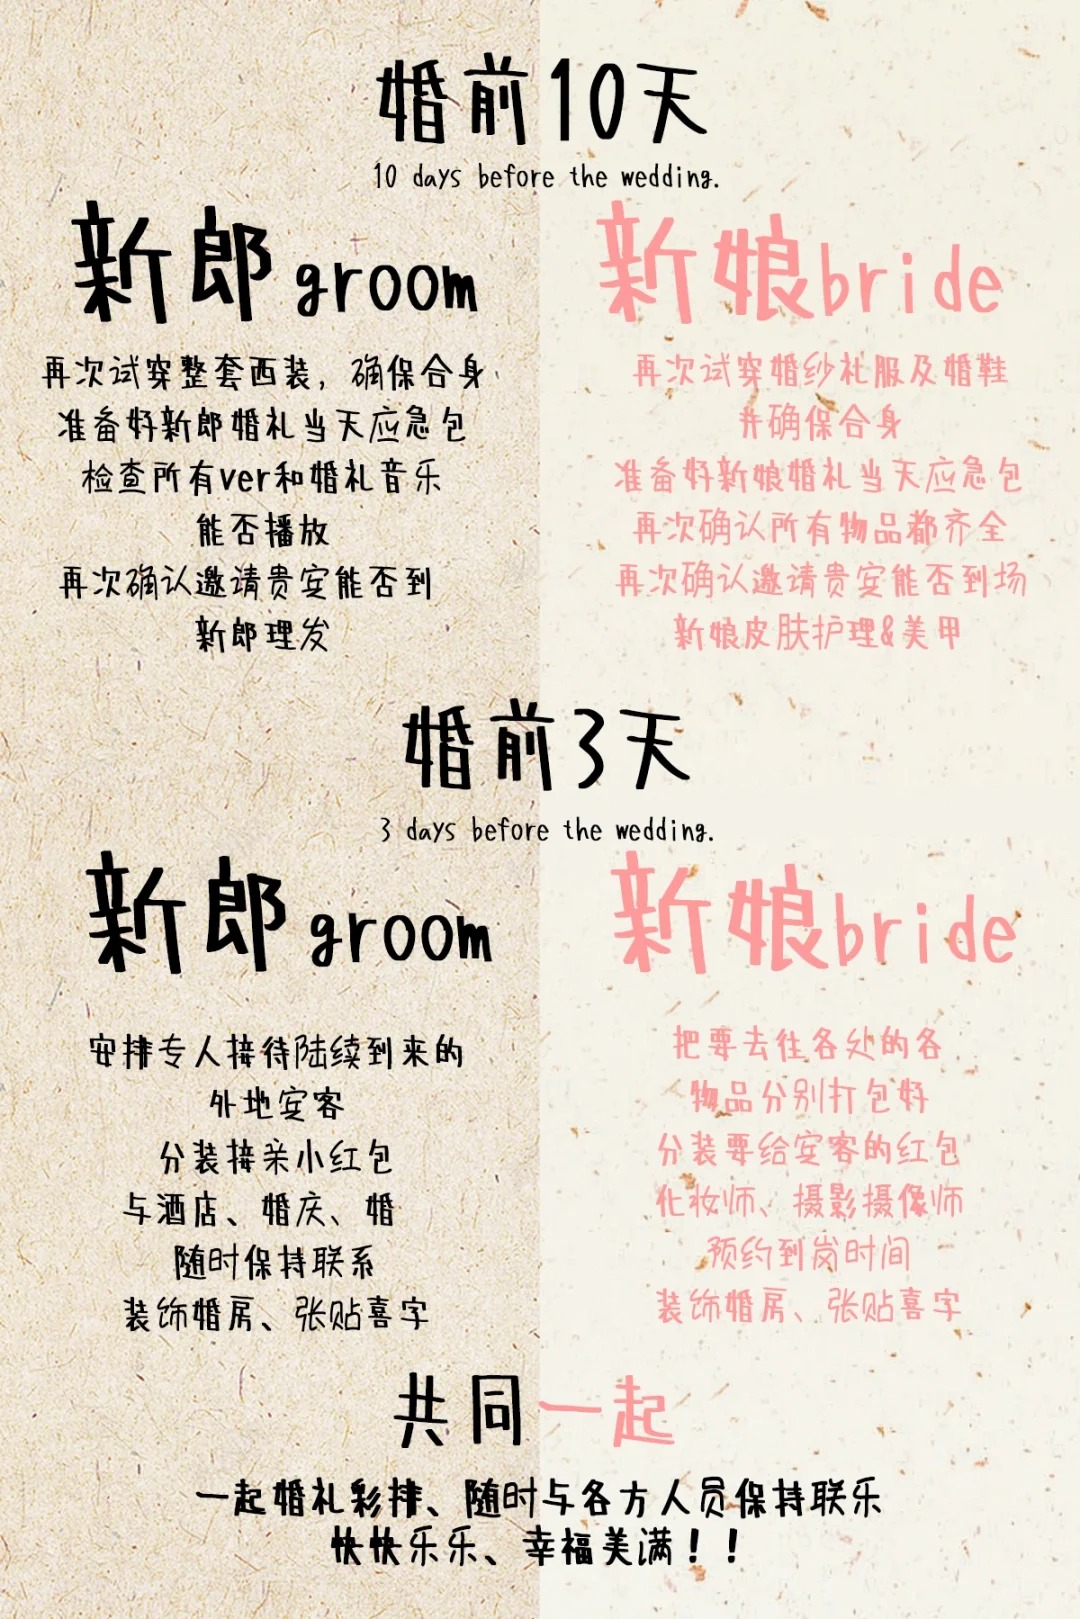 婚前10天
10 days before the wedding.
新郎groom
再次试穿整套西装，确保合身
准备好新郎婚礼当天应急包
检查所有ver和婚礼音乐
能否播放
再次确认邀请贵宾能否到
新郎理发
新娘bride
再次试穿婚纱礼服及婚鞋
并确保合身
准备好新娘婚礼当天应急包
再次确认所有物品都齐全
再次确认邀请贵宾能否到场
新娘皮肤护理&美甲
婚前3天
3 days before the wedding.
新郎groom
安排专人接待陆续到来的
外地宾客
分装接亲小红包
与酒店、婚庆、婚
随时保持联系
装饰婚房、张贴喜字
新娘bride
把要去往各处的各
物品分别打包好
分装要给宾客的红包
化妆师、摄影摄像师
预约到岗时间
装饰婚房、张贴喜字
共同一起
一起婚礼彩排、随时与各方人员保持联乐
快快乐乐、幸福美满！！